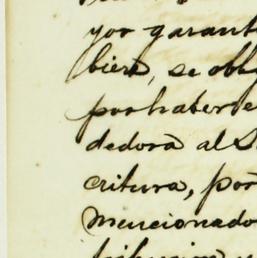 yor garant
bien, se obl
por haber e
dedora al S
critura, por
mencionado